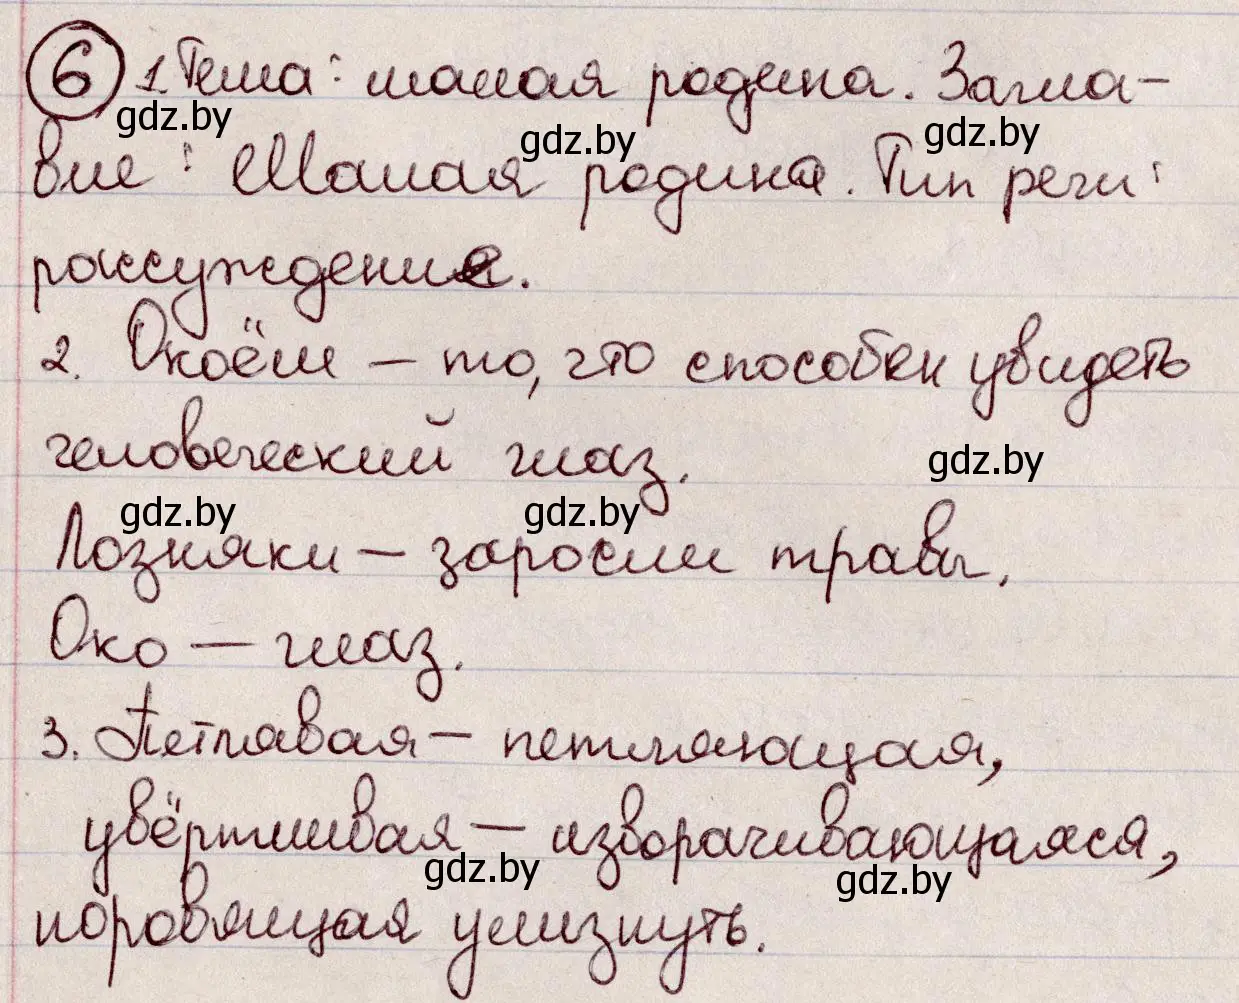 6 1. Тема: малая родина. Загла-
gdz.by gdz.by gdz.by
вие: Малая родина. Тип речи:
рассуждение.
2. Окоём – то, что способен увидеть
человеческий глаз.
gdz.by
gdz.by gdz.by
Лозняки – заросли травы.
Око – глаз.
3. Петлявая – петляющая,
увёртливая – изворачивающаяся,
gdz.by gdz.by
норовящая улизнуть.